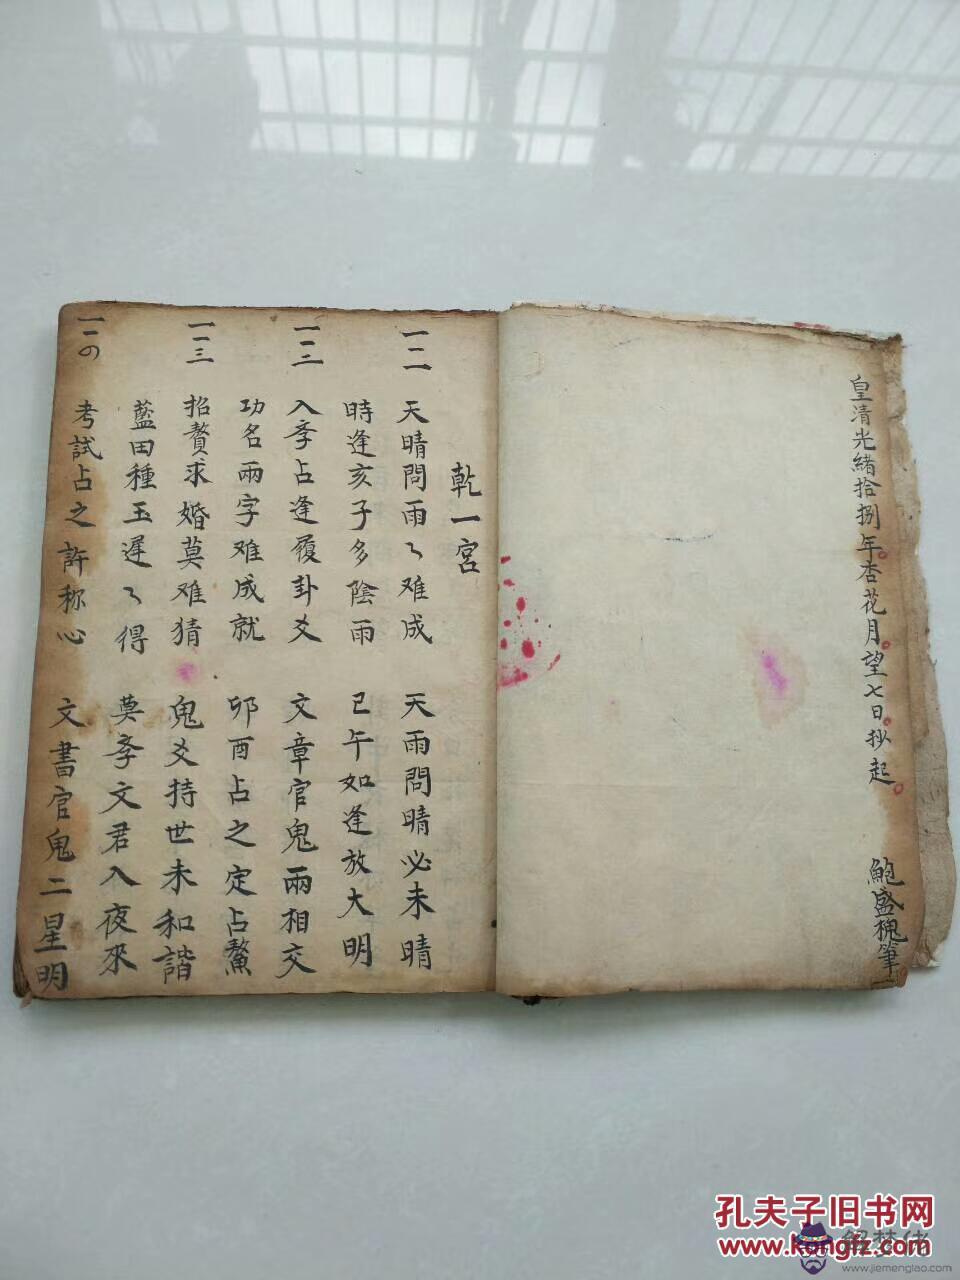 皇清光緒拾捌年杏花月望七日抄起
鮑盛槐筆
乾一宮
一一二
天晴問雨〻难成 天雨問晴必未晴
時逢亥子多陰雨 巳午如逢放大明
一二二
入孝占逢履卦爻 文章官鬼兩相交
功名兩字难成就 卯酉占之定占鰲
一一三
招贅求婚莫难猜 鬼爻持世未和諧
藍田種玉遲〻得 莫孝文君入夜來
一一の
考試占之許称心 文書官鬼二星明
孔夫子旧书网
www.kongfz.com
解梦佬
www.jiemenglao.com